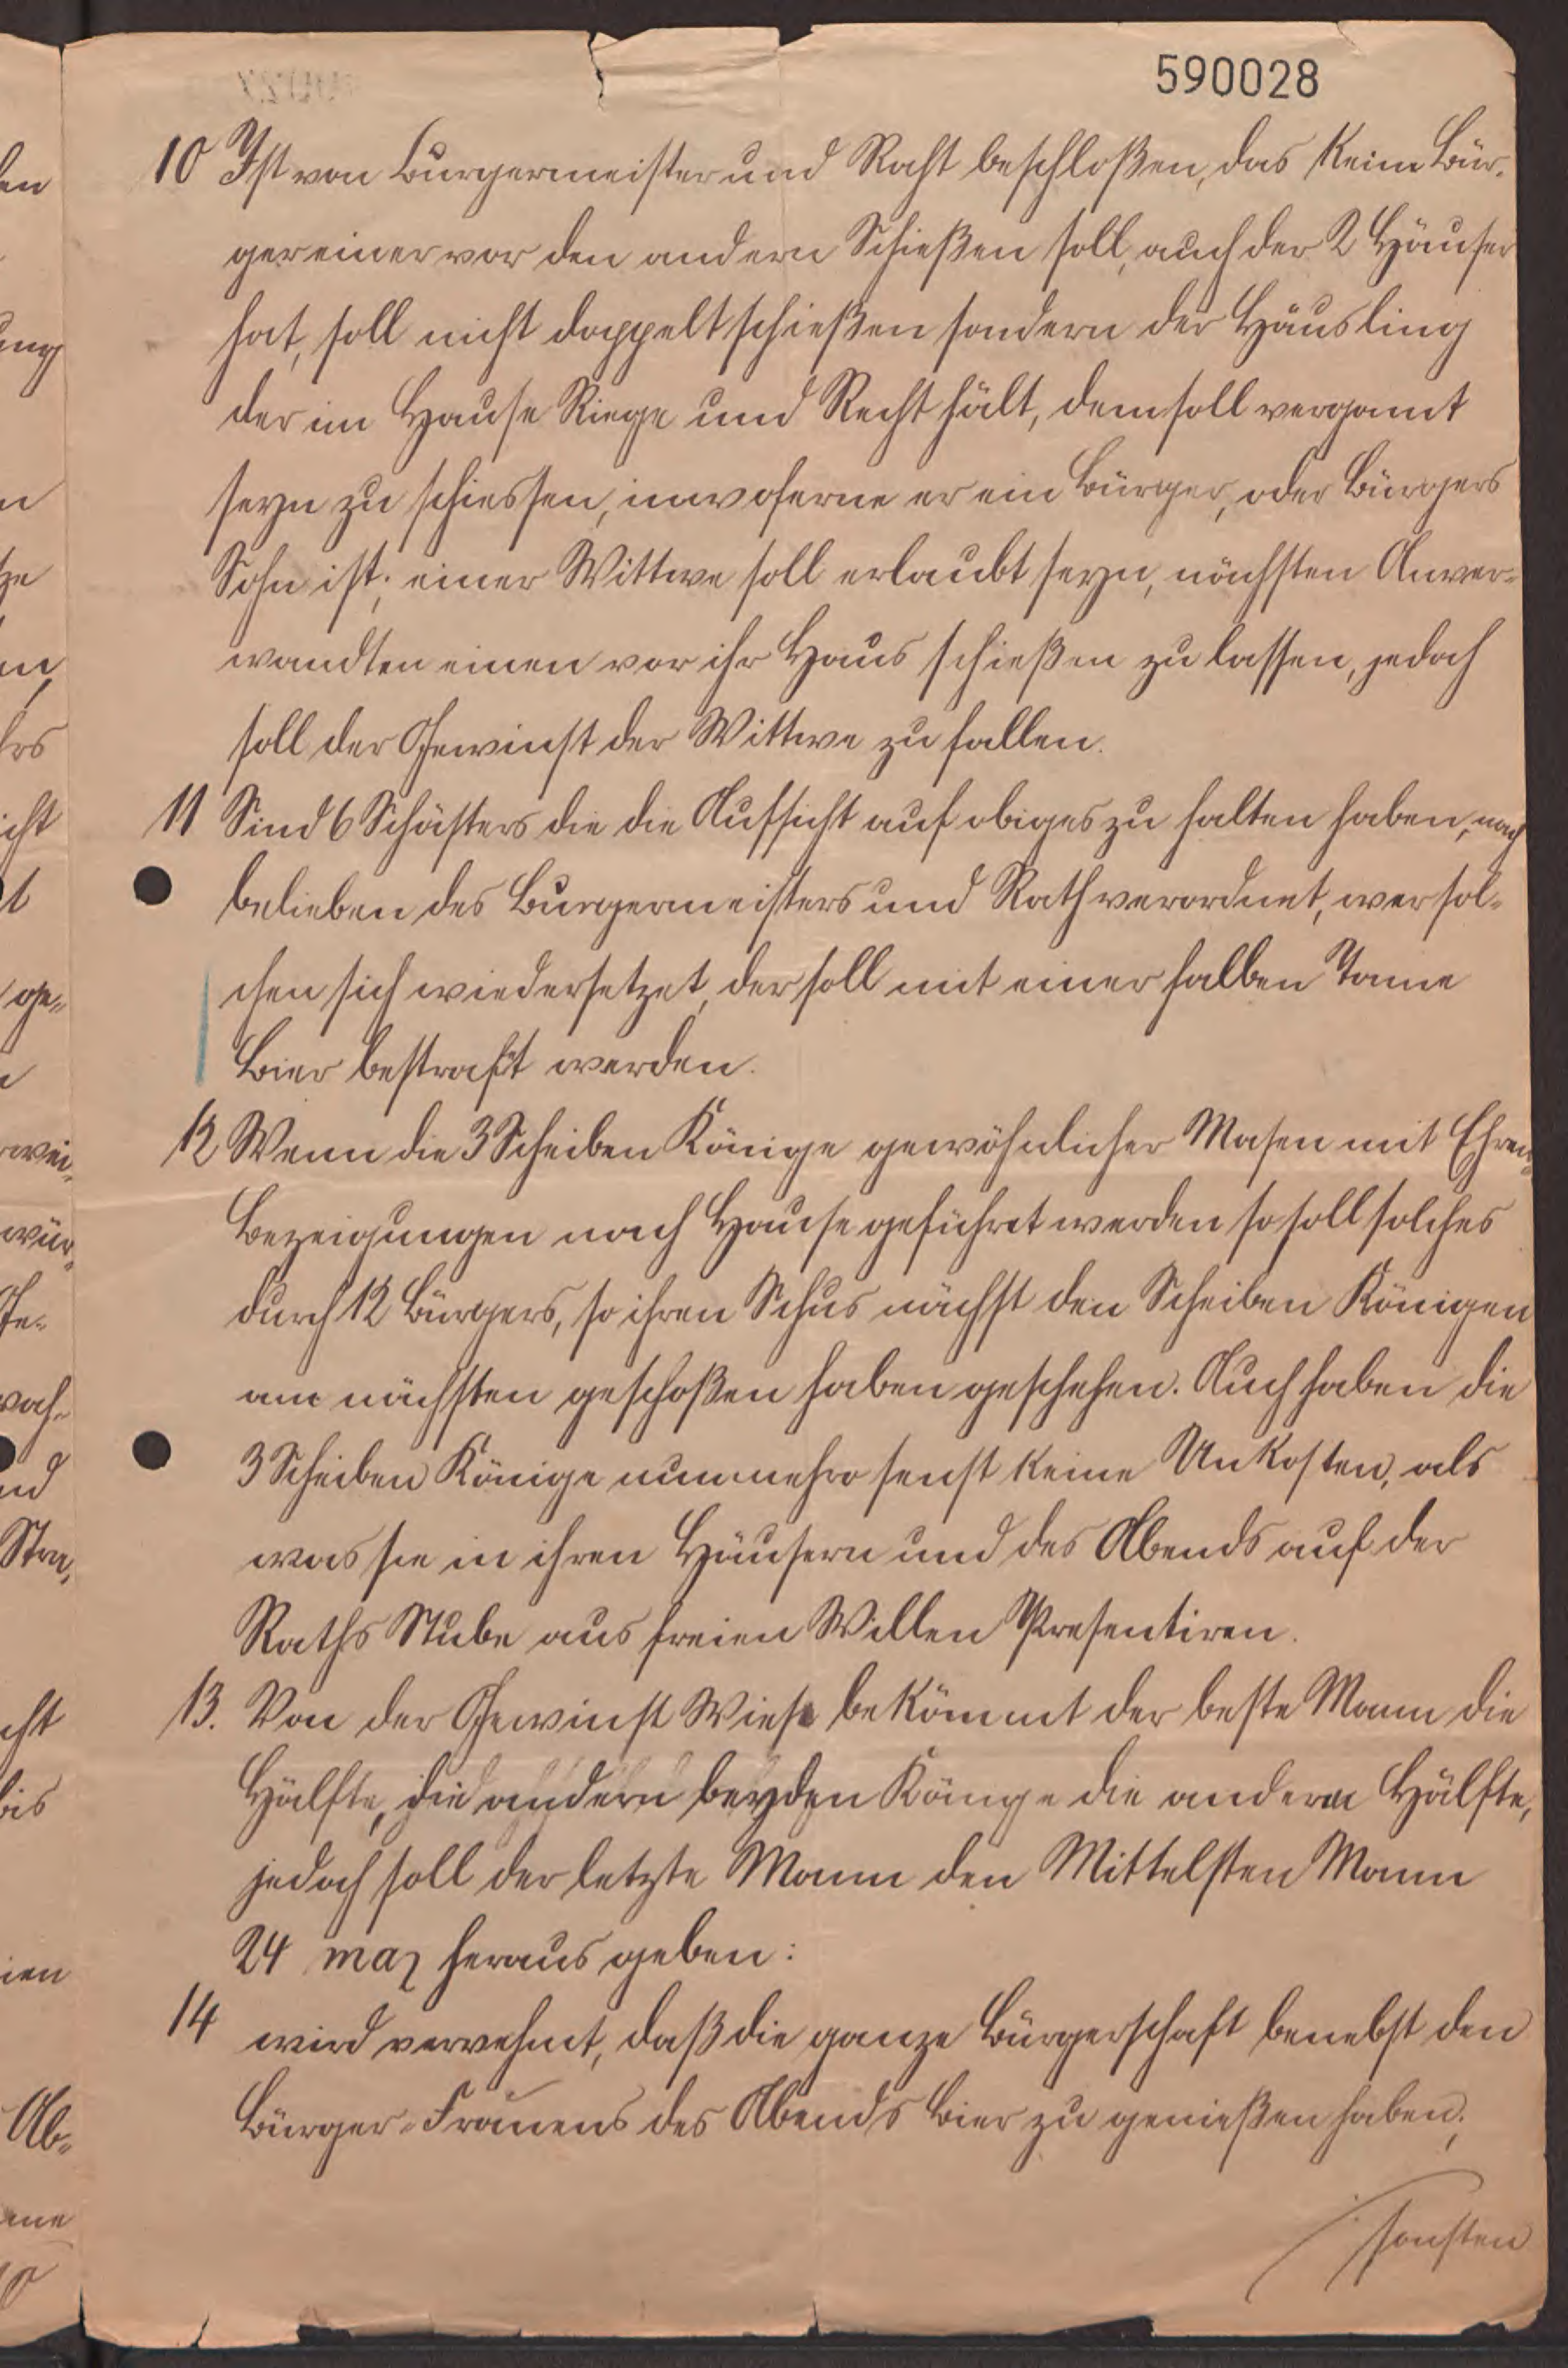 590028
10 Ist von Burgermeister und Raht beschloßen, das Kein Bür-
ger einer vor den andern Schießen soll, auch der 2 Häuser
hat, soll nicht doppelt schießen sondern der Häusling
der im Hause Riege und Recht hält, dem soll vergönt
seyn zu schiessen, inwoferne er ein Bürger, oder Bürgers
Sohn ist; einer Wittwe soll erlaubt seyn, nächsten Anver-
wandten einen vor ihr Haus schießen zu lassen, jedoch
soll der Gewinst der Wittwe zu fallen.
11 Sind 6 Schäffers die die Aufsicht auf obiges zu halten haben, nach
belieben des Burgermeisters und Rath verordnet, wer sol-
chen sich wiedersetzet der soll mit einer halben Tonne
Bier bestraft werden.
12 Wenn die 3 Scheiben Könige gewöhnlicher Masen mit Ehren-
Bezeigungen nach Hause geführet werden so soll solches
durch 12 Bürgers, so ihren Schus nächst den Scheiben Königen
am nächsten geschoßen haben geschehen. Auch haben die
3 Scheiben Könige nunmehro senst keine Unkosten, als
was sie in ihren Häusern und des Abends auf der
Raths Stube aus freien Willen Presentiren.
13. Von der Gewinst Wiese bekömmt der beste Mann die
Hälfte, die andern beyden Könige die andern Hälfte,
jedoch soll der letzte Mann den Mittelsten Mann
24 heraus geben:
14 wird verwehnt, daß die ganze Bürgerschaft benebst den
Bürger-Frauens des Abends Bier zu genießen haben;
sonsten